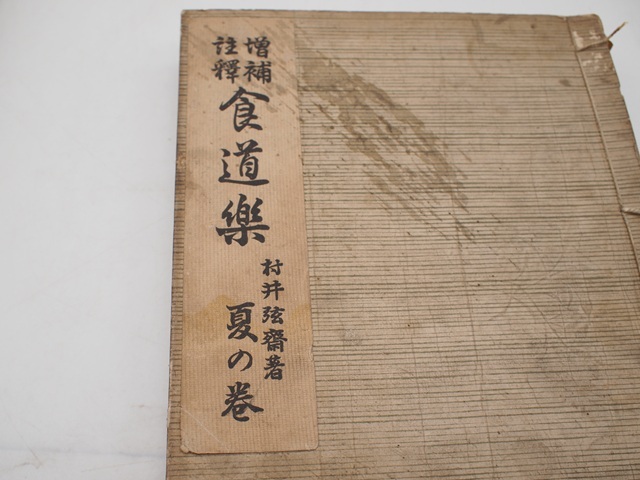 増補
註釋
食道樂
村井弦齋著
夏の巻